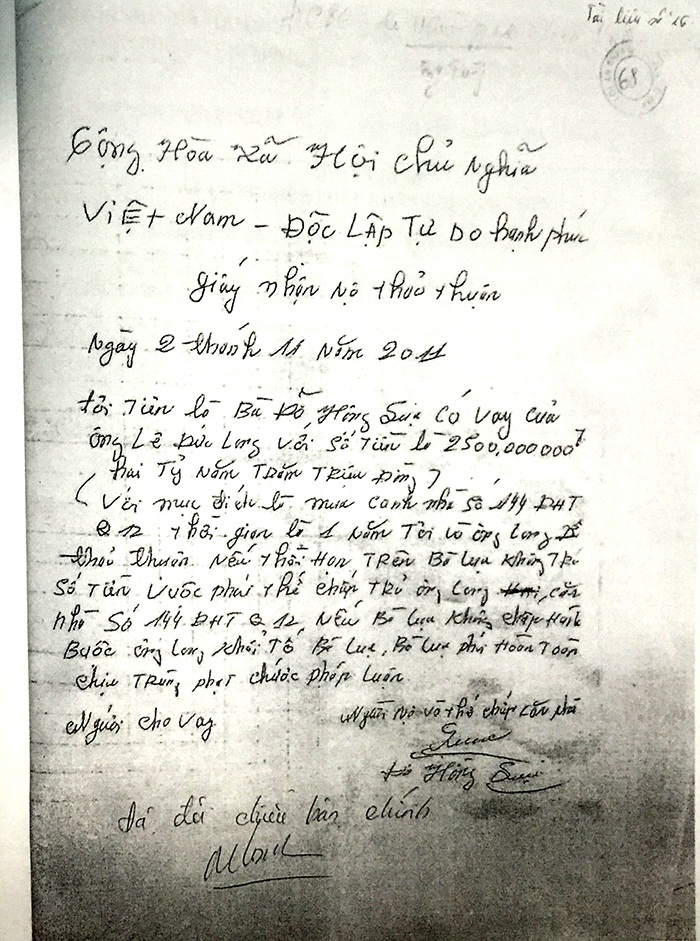 Tài liệu số 16
68
Cộng Hòa Xã Hội chủ nghĩa
Việt Nam - Độc Lập Tự Do hạnh phúc
giấy nhận nợ thoả thuận
Ngày 2 tháng 11 năm 2011
tôi Tên là Bà Đỗ Hồng có vay của
ông Lê Đức Long với số tiền là 2500,000000đ
hai Tỷ Năm Trăm Triệu Đồng)
(Với mục đích là mua canh nhà số 144 ĐHT
Q 12 thời gian là 1 năm Tôi và ông Long
thoả thuận nếu thời Hạn Trên Bà Lụa không Trả
số Tiền buộc phải thế chấp Trả ông Long căn
nhà số 144 ĐHT Q 12, Nếu Bà Lụa không chấp Hành
Buộc ông Long khởi Tố Bà Lụa, Bà Lụa phải Hoàn Toàn
chịu Trừng phạt trước pháp luận
Người cho vay
Người nợ và thế chấp căn nhà
Hồng
Đã đối chiếu bản chính